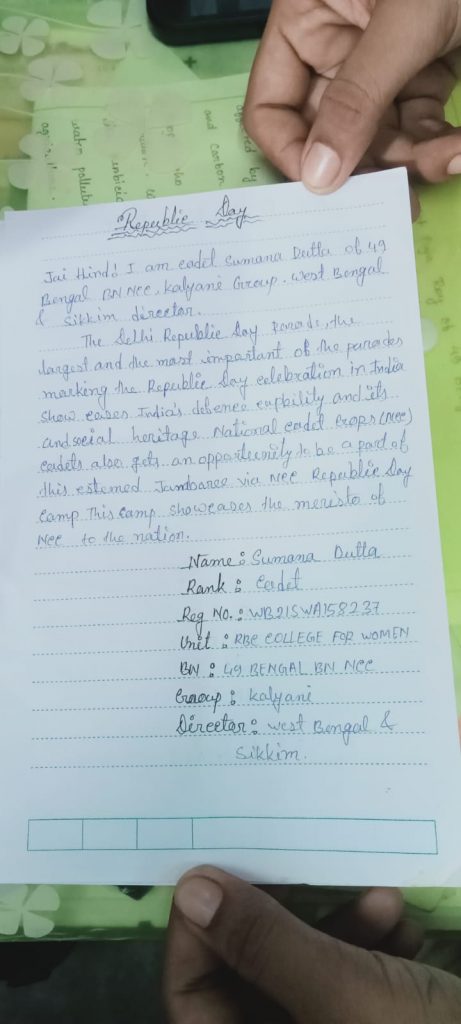 affected by
and carbon
water pollution
Republic Day
Jai Hind! I am cadet Sumana Dutta of 49
Bengal BN NCC, Kalyani Group. West Bengal
& Sikkim director.
The Delhi Republic Day Parade, the
largest and the most important of the parades
marking the Republic Day celebration in India
show cases India's defence capbility and its
and social heritage National cadet crops (NCC)
cadets also gets an opportunity to be a part of
this estemed Jamboree via NCC Republic Day
Camp This Camp showcases the meristo of
NCC to the nation.
Name: Sumana Dutta
Rank: Cadet
Reg No.: WB21SWA158237
Unit: RBC COLLEGE FOR WOMEN
BN: 49 BENGAL BN NCC
Group: Kalyani
Director: West Bengal &
Sikkim.